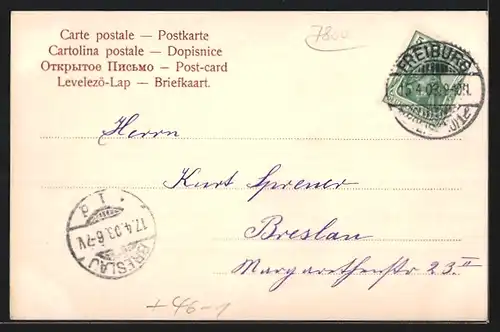 Carte postale — Postkarte
Cartolina postale — Dopisnice
Открытое Письмо — Post-card
Levelező-Lap — Briefkaart.
7800
FREIBURG
15.4.03.9-10N.
Herrn
Kurt Sprener
Breslau
Margarethenstr 23 II
17.4.03.6-7V.
BRESLAU
+46-1